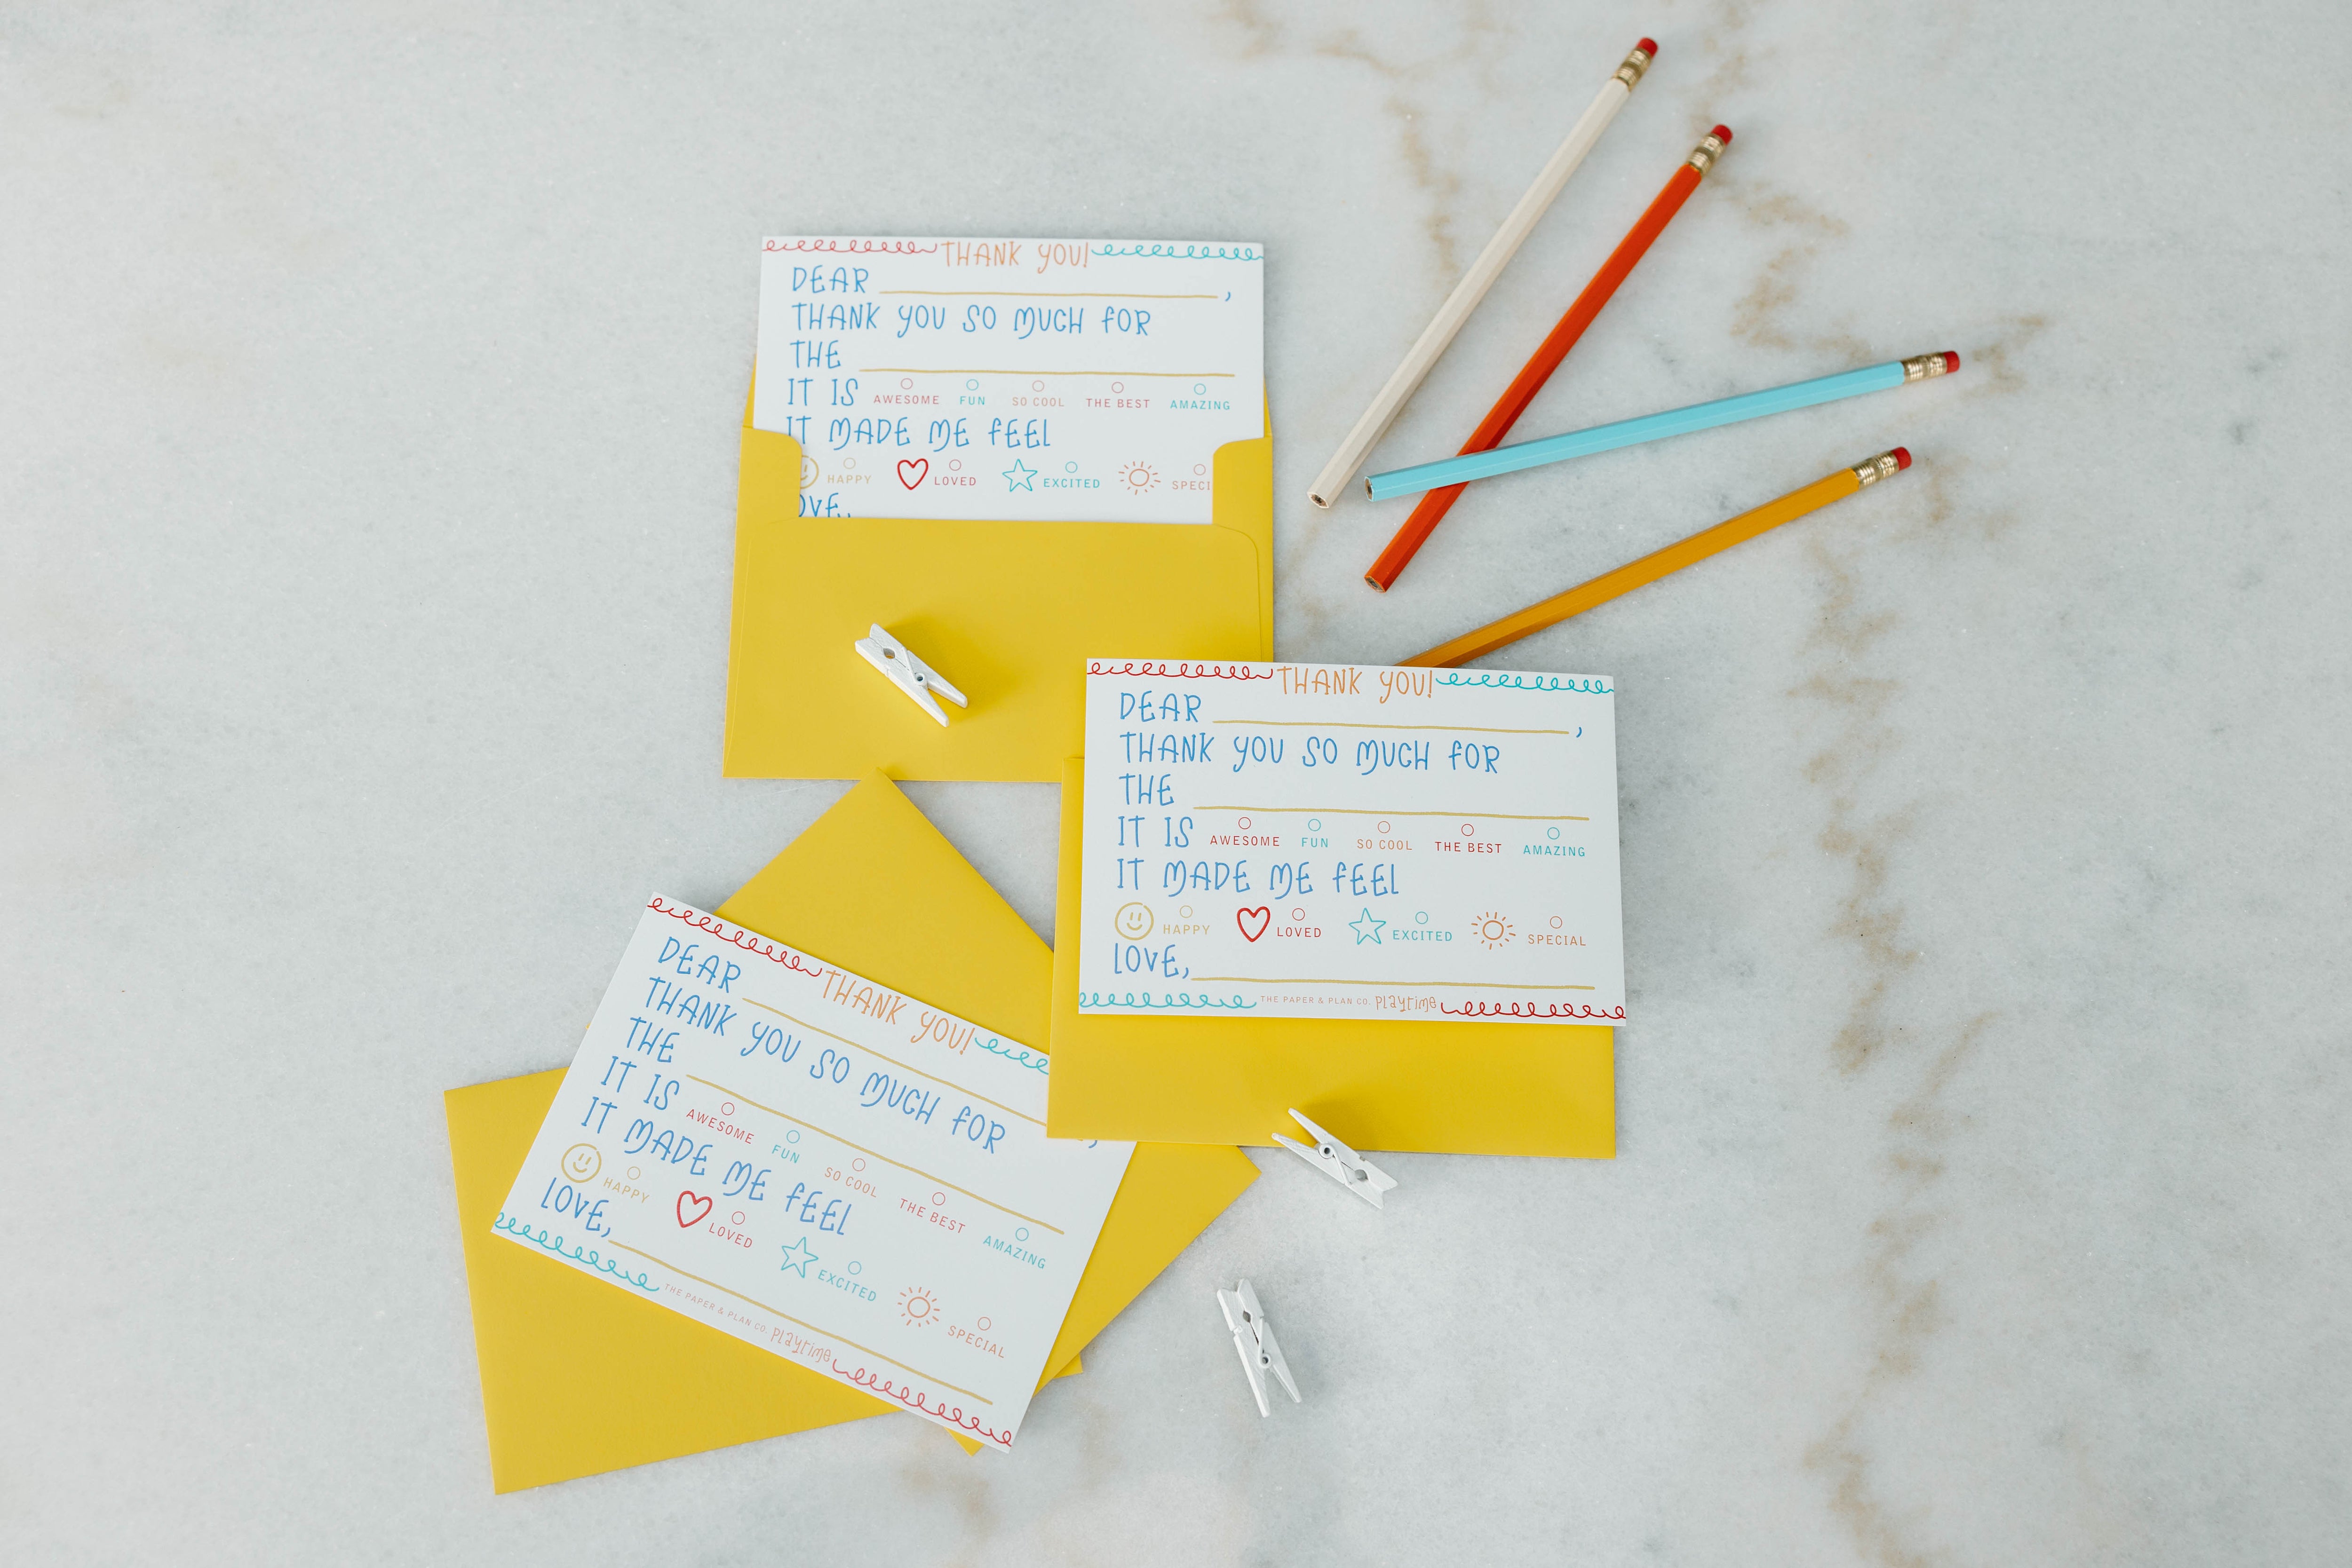 THANK YOU!
DEAR ,
THANK YOU SO MUCH FOR
THE
IT IS AWESOME FUN SO COOL THE BEST AMAZING
IT MADE ME FEEL
HAPPY LOVED EXCITED SPECI
OVE,
THANK YOU!
DEAR ,
THANK YOU SO MUCH FOR
THE
IT IS AWESOME FUN SO COOL THE BEST AMAZING
IT MADE ME FEEL
HAPPY LOVED EXCITED SPECIAL
LOVE,
THE PAPER & PLAN CO. PLAYTIME
THANK YOU!
DEAR ,
THANK YOU SO MUCH FOR
THE
IT IS AWESOME FUN SO COOL THE BEST AMAZING
IT MADE ME FEEL
HAPPY LOVED EXCITED SPECIAL
LOVE,
THE PAPER & PLAN CO. PLAYTIME